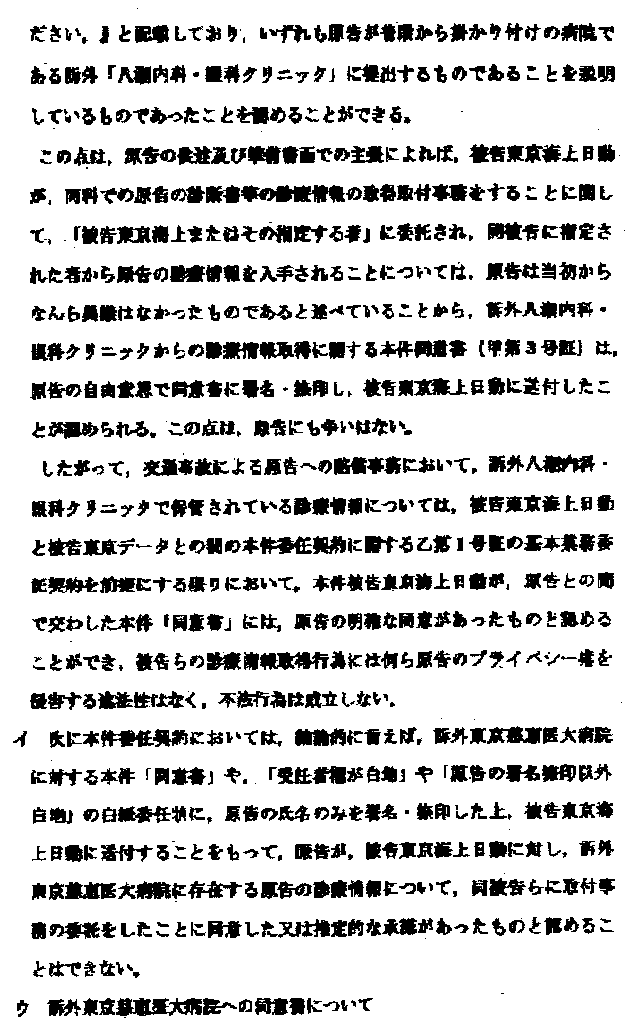 ださい。』と記載しており，いずれも原告が普段から掛かり付けの病院で
ある訴外「八潮内科・眼科クリニック」に提出するものであることを説明
しているものであったことを認めることができる。
この点は，原告の後述及び準備書面での主張によれば，被告東京海上日動
が，両科での原告の診断書等の診療情報の取得取付事務をすることに関し
て，「被告東京海上またはその指定する者」に委託され，同被告に指定さ
れた者から原告の診療情報を入手されることについては，原告は当初から
なんら異議はなかったものであると述べていることから，訴外八潮内科・
眼科クリニックからの診療情報取得に関する本件同意書（甲第３号証）は，
原告の自由意思で同意書に署名・捺印し，被告東京海上日動に送付したこ
とが認められる。この点は，原告にも争いはない。
したがって，交通事故による原告への賠償事務において，訴外八潮内科・
眼科クリニックで保管されている診療情報については，被告東京海上日動
と被告東京データとの間の本件委任契約に関する乙第１号証の基本業務委
託契約を前提にする限りにおいて。本件被告東京海上日動が，原告との間
で交わした本件「同意書」には，原告の明確な同意があったものと認める
ことができ，被告らの診療情報取得行為には何ら原告のプライベシー権を
侵害する違法性はなく，不法行為は成立しない。
イ 次に本件委任契約においては，結論的に言えば，訴外東京慈恵医大病院
に対する本件「同意書」や，「受任者欄が白地」や「原告の署名捺印以外
白地」の白紙委任状に，原告の氏名のみを署名・捺印した上，被告東京海
上日動に送付することをもって，原告が，被告東京海上日動に対し，訴外
東京慈恵医大病院に存在する原告の診療情報について，同被告らに取付事
務の委託をしたことに同意した又は推定的な承諾があったものと認めるこ
とはできない。
ウ 訴外東京慈恵医大病院への同意書について